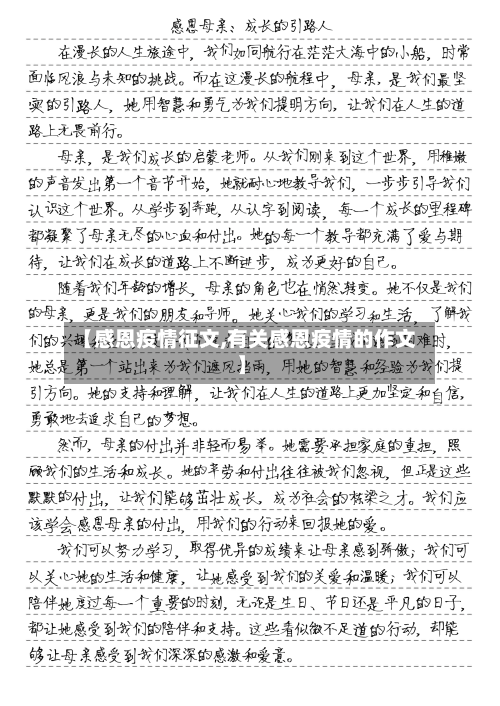 感恩母亲：成长的引路人
在漫长的人生旅途中，我们如同航行在茫茫大海中的小船，时常
面临风浪与未知的挑战。而在这漫长的航程中，母亲，是我们最坚
实的引路人，她用智慧和勇气为我们指明方向，让我们在人生的道
路上无畏前行。
母亲，是我们成长的启蒙老师。从我们刚来到这个世界，用稚嫩
的声音发出第一个音节开始，她就耐心地教导我们，一步步引导我们
认识这个世界。从学步到奔跑，从认字到阅读，每一个成长的里程碑
都凝聚了母亲无尽的心血和付出。她的每一个教导都充满了爱与期
待，让我们在成长的道路上不断进步，成为更好的自己。
随着我们年龄的增长，母亲的角色也在悄然转变。她不仅是我们
的母亲，更是我们的朋友和导师。她关心我们的学习和生活，了解我
们的兴趣
【感恩疫情征文,有关感恩疫情的作文
】
难时，
她总是第一个站出来为我们遮风挡雨，用她的智慧和经验为我们指
引方向。她的支持和理解，让我们在人生的道路上更加坚定和自信，
勇敢地去追求自己的梦想。
然而，母亲的付出并非轻而易举。她需要承担家庭的重担，照
顾我们的生活和成长。她的辛劳和付出往往被我们忽视，但正是这些
默默的付出，让我们能够茁壮成长，成为社会的栋梁之才。我们应
该学会感恩母亲的付出，用我们的行动来回报她的爱。
我们可以努力学习，取得优异的成绩来让母亲感到骄傲；我们可
以关心她的生活和健康，让她感受到我们的关爱和温暖；我们可以
陪伴她度过每一个重要的时刻，无论是生日、节日还是平凡的日子，
都让她感受到我们的陪伴和支持。这些看似微不足道的行动，却能
够让母亲感受到我们深深的感激和爱意。